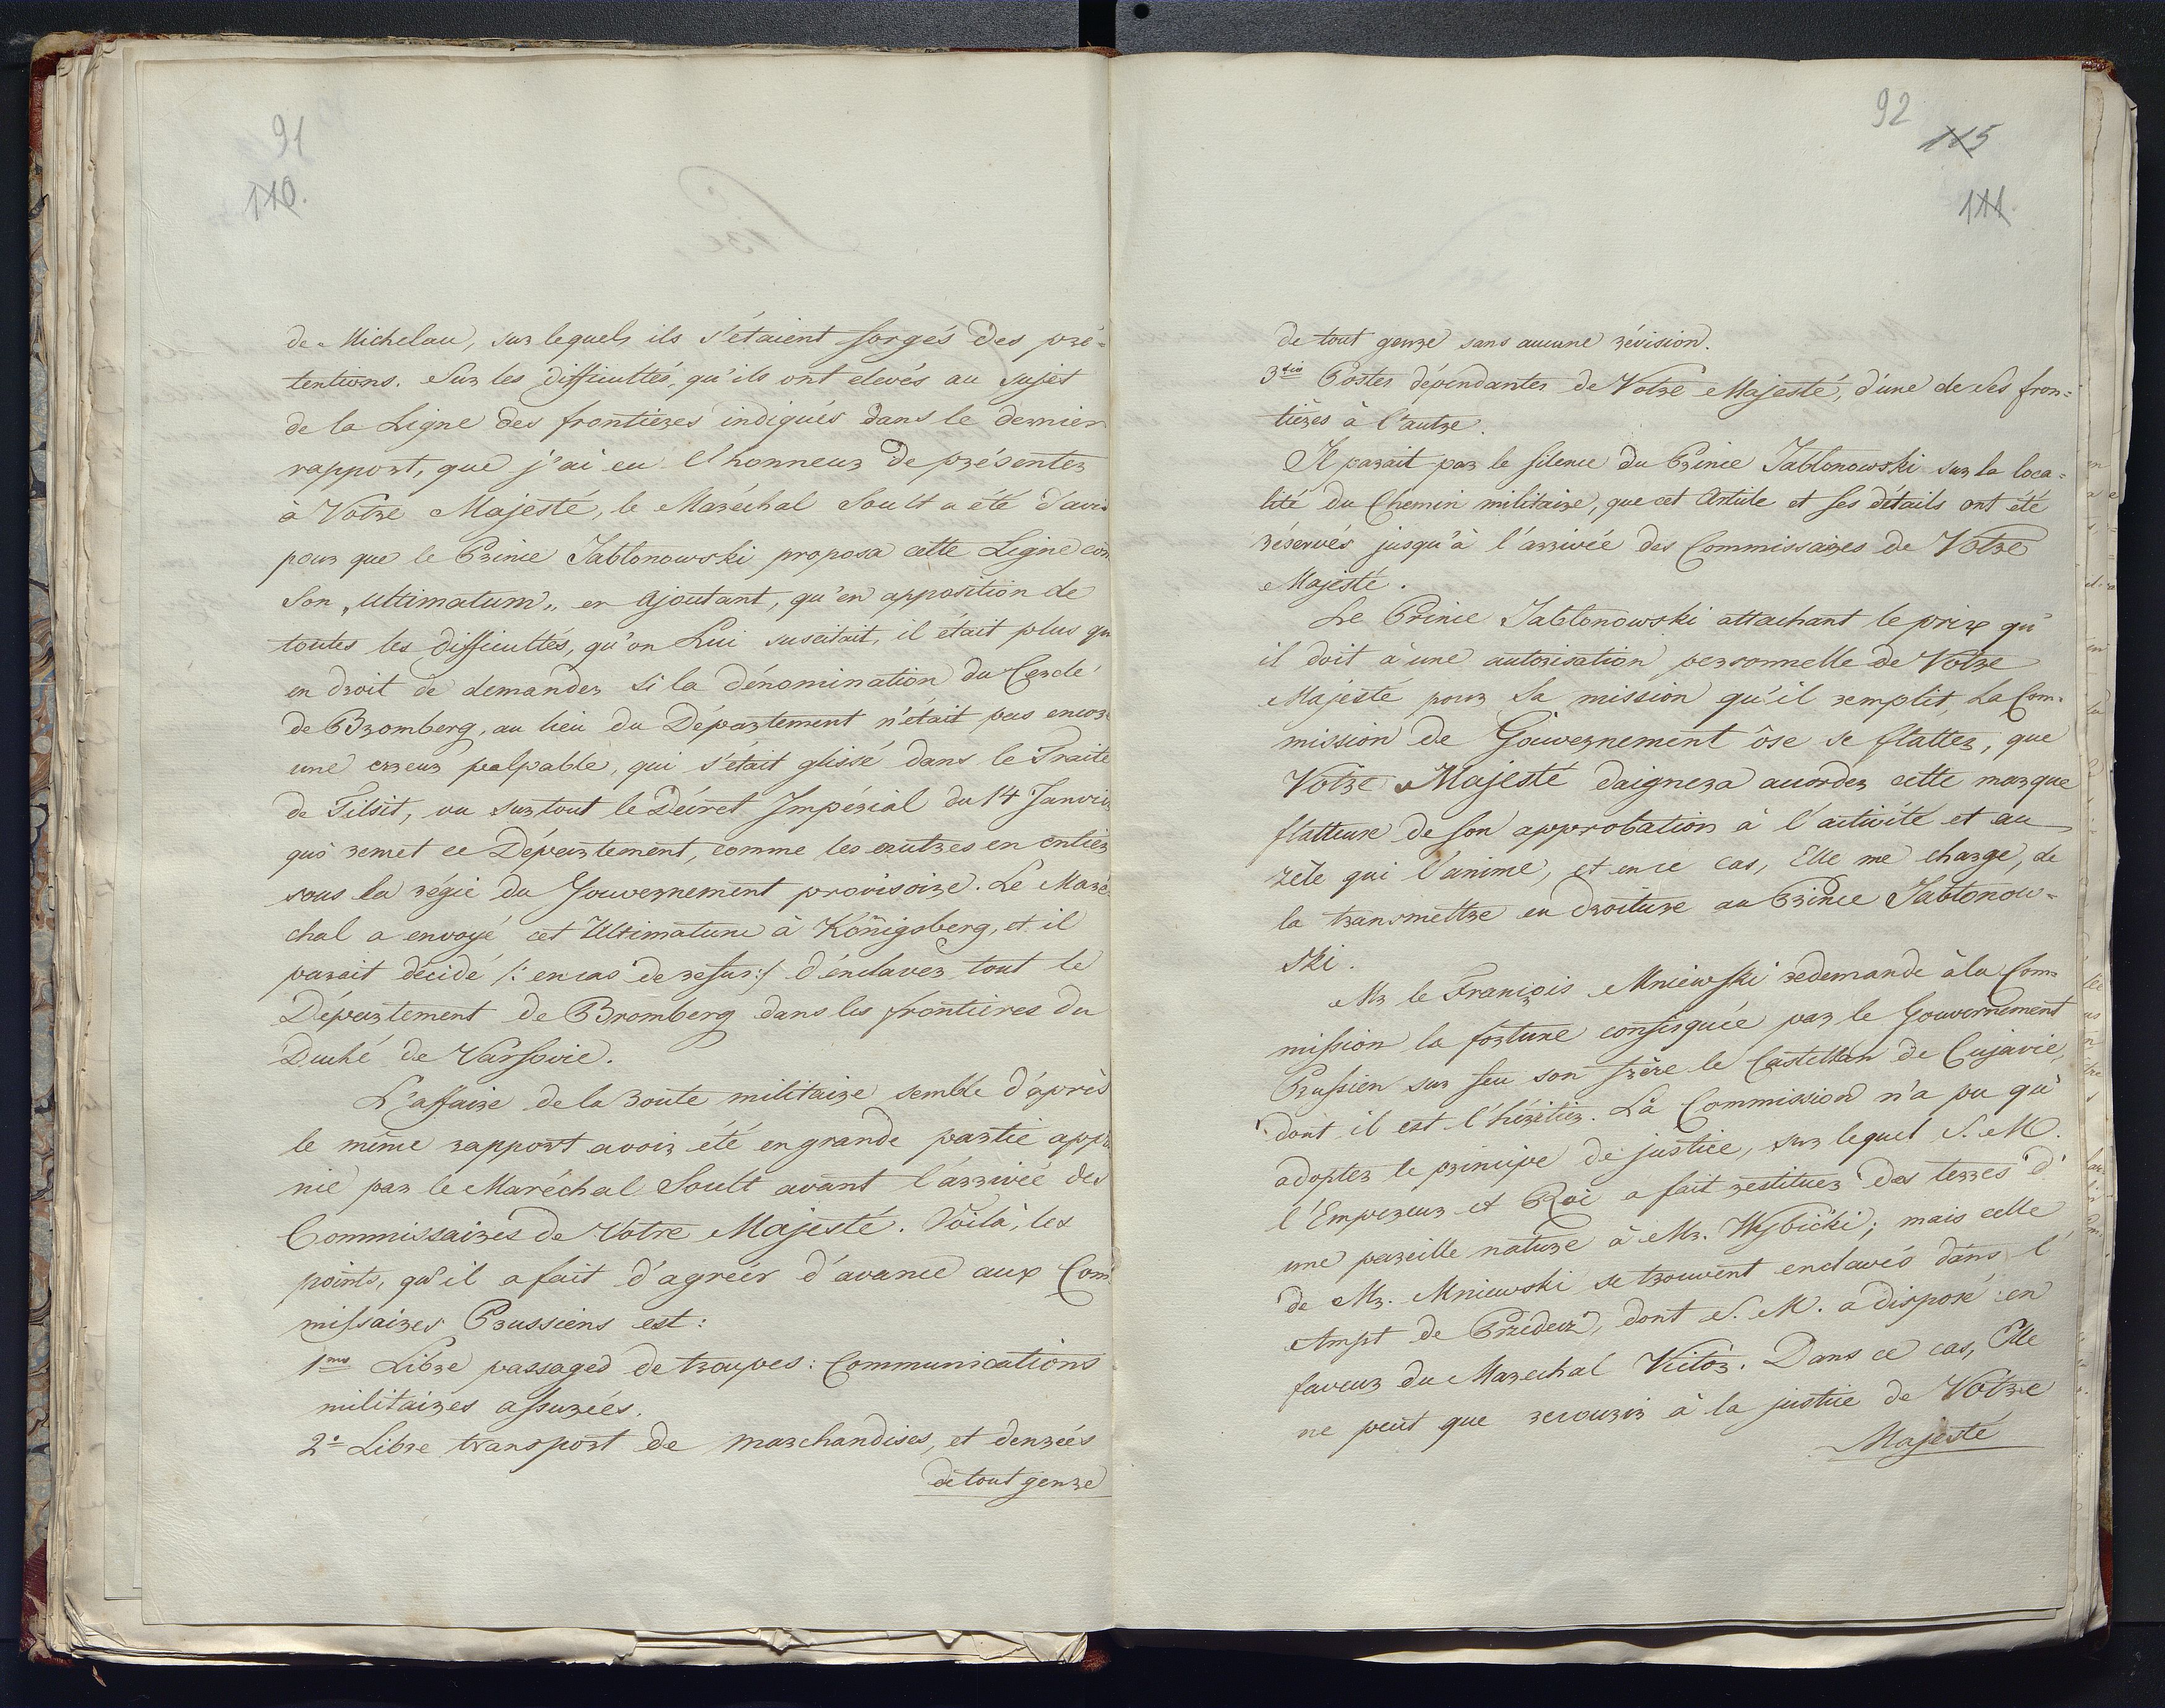 91
110.
de Michelau, sur lequel, ils s'étaient forgés des pré=
tentions. Sur les difficultés, qu'ils ont elevés au sujet
de la Ligne des frontieres indiqués dans le dernier
rapport, que j'ai eu l'honneur de présenter
à Votre Majesté, le Maréchal Soult a été d'avis
pour que le Prince Jablonowski proposa cette Ligne com
Son „Ultimatum„ en ajoutant, qu'en apposition de
toutes les difficultés, qu'on Lui suscitait, il était plus qu
en droit de demander si la dénomination du Cercle
de Bromberg, au lieu du Département n'était pas encore
une erreur palpable, qui s'était glissé dans le Traité
de Tilsit, vu surtout le Décret Impérial du 14 Janvier
qui remet ce Département, comme les autres en entier
sous la régie du Gouvernement provisoire. Le Maré
chal a envoyé cet Ultimatum à Königsberg, et il
parait décidé /: en cas de refus:/ d'enclaver tout le
Département de Bromberg dans les frontieres du
Duché de Varsovie.
L'affaire de la route militaire semble d'après
le même rapport avoir été en grande partie appla
nie par le Maréchal Soult avant l'arrivée des
Commissaires de Votre Majesté. Voilà, les
points, qu'il a fait d'agréér d'avance aux Com
missaires Prussiens est:
1mo Libre passages de troupes: Communications
militaires assurées.
2o Libre transport de marchandises, et denrées
de tout genre
92
115
111.
de tout genre sans aucune révision.
3tio Postes dépendantes de Votre Majesté, d'une de ses fron=
tières à l'autre.
Il parait par le silence du Prince Jablonowski sur la loca=
lité du Chemin militaire, que cet Article et ses détails ont été
réservés jusqu'à l'arrivée des Commissaires de Votre
Majesté.
Le Prince Jablonowski attachant le prix qu'
il doit à une autorisation personnelle de Votre
Majesté pour Sa mission qu'il remplit, La Com=
mission de Gouvernement ôse se flatter, que
Votre Majesté daignera accorder cette marque
flatteuse de Son approbation à l'activité et au
zêle qui l'anime, et en ce cas, Elle me charge, de
la transmettre en droiture au Prince Jablonow=
ski.
Mr le François Mniewski redemande à la Com=
mission la fortune confisquée par le Gouvernement
Prussien sur feu son frère le Castellan de Cujavie,
dont il est l'héritier. La Commission n'a pu qu'
adopter le principe de justice, sur lequel S. M.
l'Empereur et Roi a fait restituer des terres d'
une pareille nature à Mr. Wybicki; mais celle
de Mr. Mniewski se trouvent enclavés dans l'
Ampt de Przedecz, dont S. M. a disposé en
faveur du Marechal Victor. Dans ce cas, Elle
ne peut que recourir à la justice de Votre
Majesté